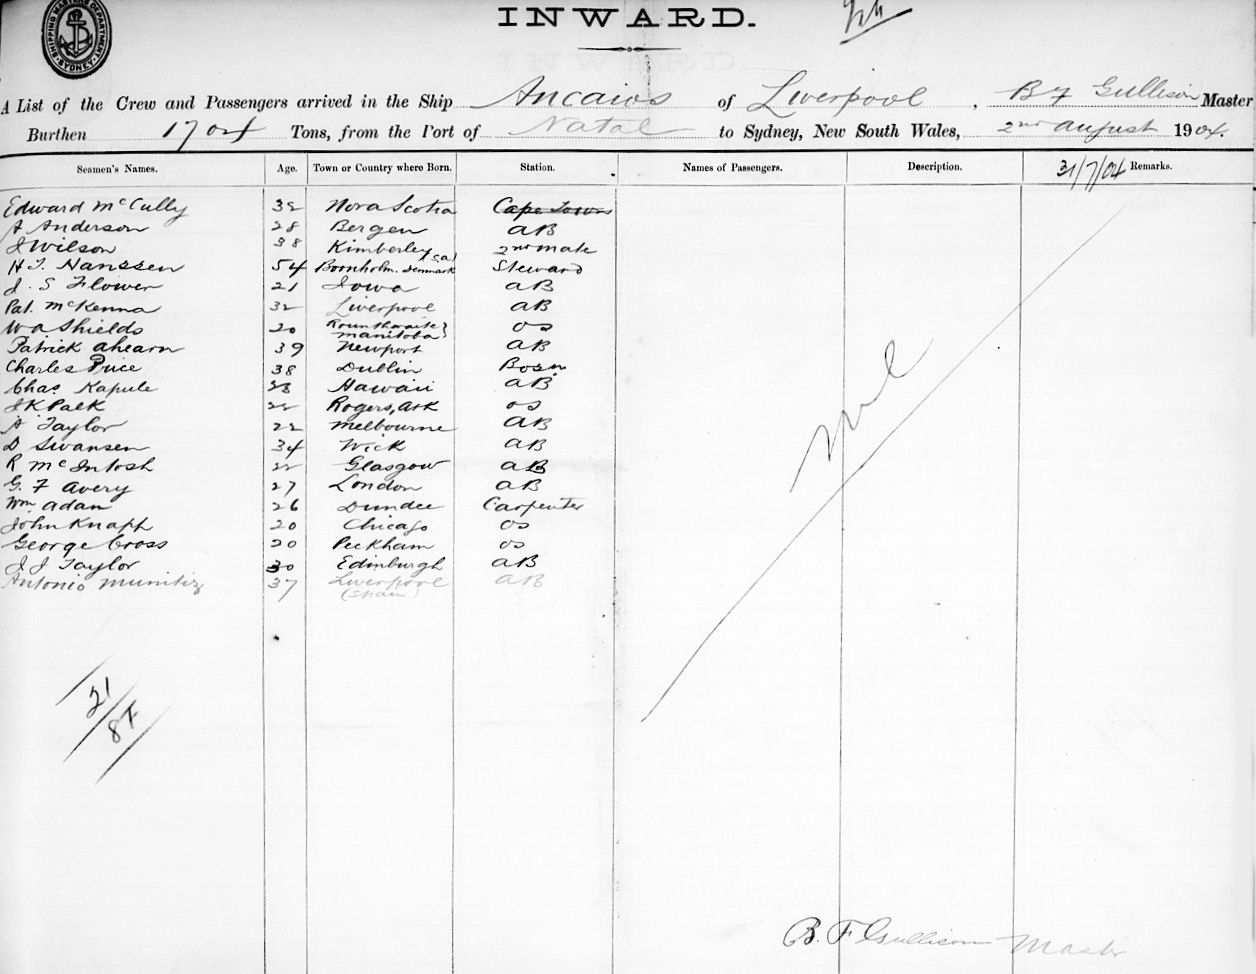 SHIPPING MASTERS DEPARTMENT. SYDNEY.
INWARD.
A List of the Crew and Passengers arrived in the Ship Ancaios of Liverpool, B F Gullison Master
Burthen 1704 Tons, from the Port of Natal to Sydney, New South Wales, 2nd August 1904.
Seamen's Names. Age. Town or Country where Born. Station. Names of Passengers. Description. 31/7/04 Remarks.
Edward McCully 32 Nova Scotia Cape Town
A Anderson 28 Bergen AB
J Wilson 38 Kimberley (S.A) 2nd mate
H J. Hanssen 54 Bornholm. Denmark Steward
J. S Flower 21 Iowa AB
Pat. McKenna 32 Liverpool AB
W A Shields 20 Rounthwaite Manitoba OS
Patrick Ahearn 39 Newport AB
Charles Price 38 Dublin Bosn
Chas. Kapule 23 Hawaii AB
J K Palk 22 Rogers, Ark OS
A Taylor 22 Melbourne AB
D Swansen 34 Wick AB
R McIntosh 22 Glasgow AB
G. F Avery 27 London AB
Wm Adan 26 Dundee Carpenter
John Knapp 20 Chicago OS
George Cross 20 Peckham OS
J J Taylor 30 Edinburgh AB
Antonio Munitiz 37 Liverpool AB
(Spain)
nil
21/87
B. F Gullison Master